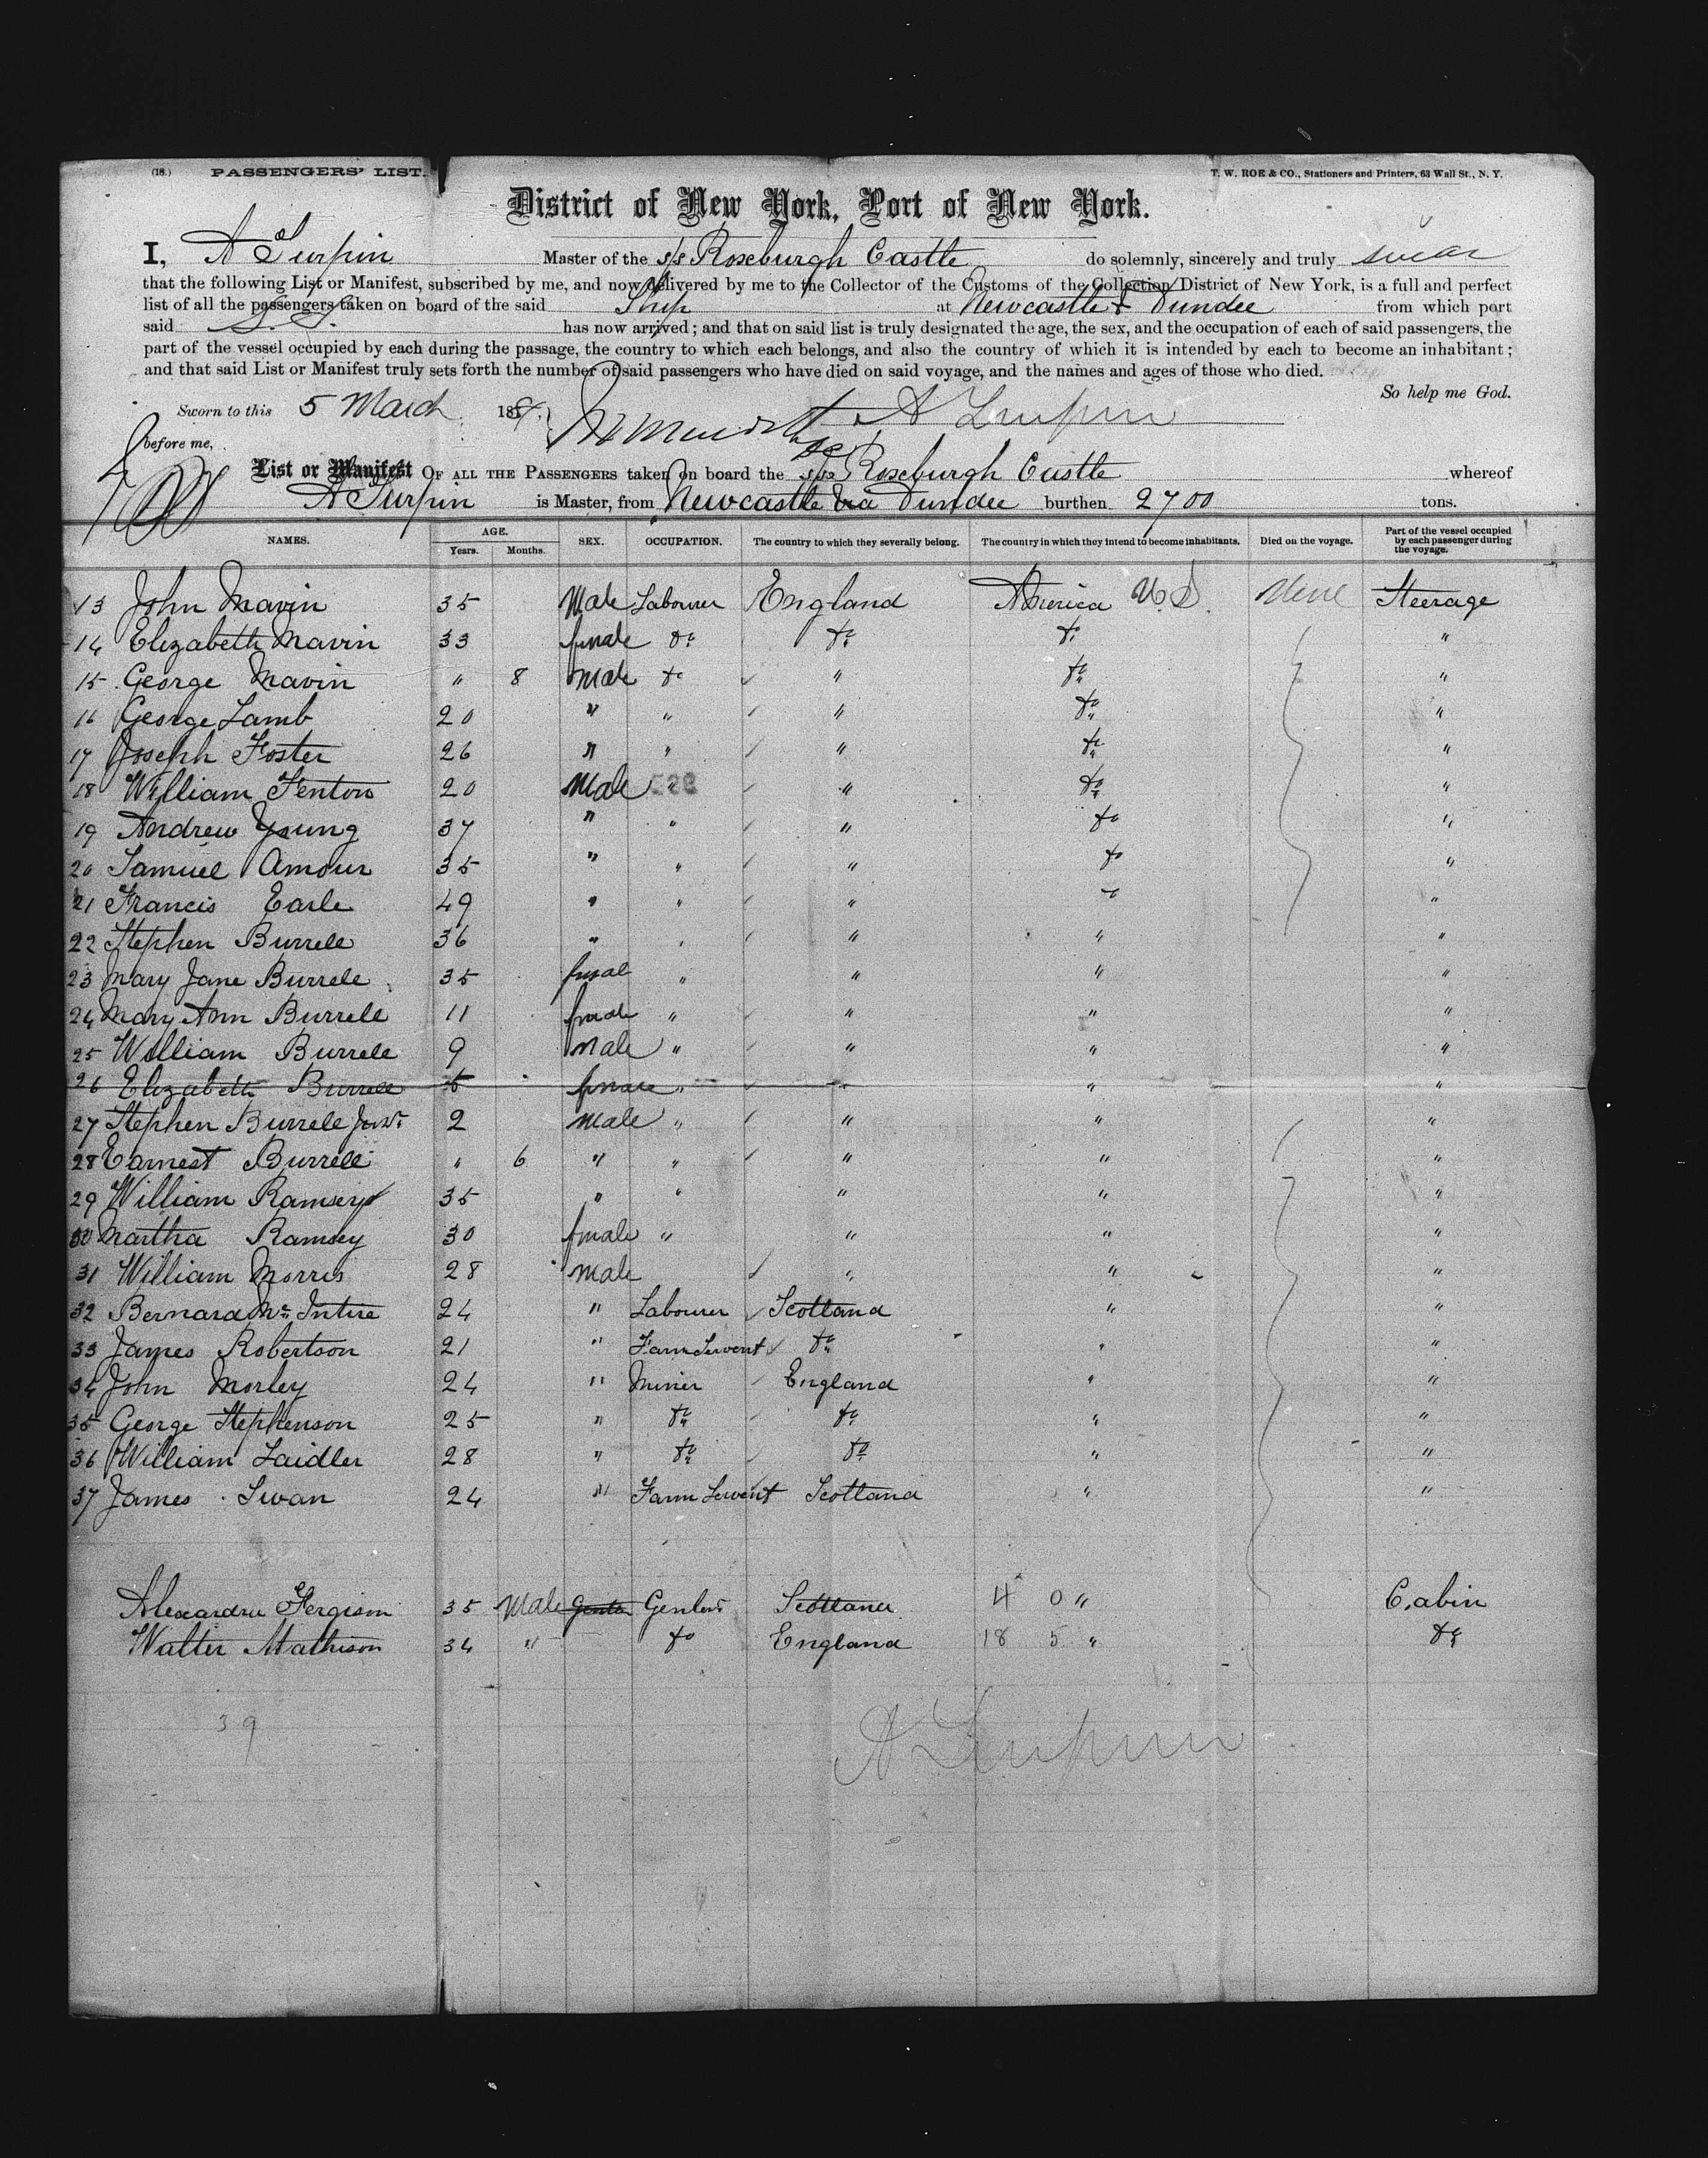 (18.) PASSENGERS' LIST. T. W. ROE & CO., Stationers and Printers, 63 Wall St., N. Y.
District of New York, Port of New York.
I, A Turpin Master of the s/s Roseburgh Castle do solemnly, sincerely and truly swear
that the following List or Manifest, subscribed by me, and now delivered by me to the Collector of the Customs of the Collection District of New York, is a full and perfect
list of all the passengers taken on board of the said Ship at Newcastle & Dundee from which port
said S. S. has now arrived; and that on said list is truly designated the age, the sex, and the occupation of each of said passengers, the
part of the vessel occupied by each during the passage, the country to which each belongs, and also the country of which it is intended by each to become an inhabitant;
and that said List or Manifest truly sets forth the number of said passengers who have died on said voyage, and the names and ages of those who died.
So help me God.
Sworn to this 5 March 188 A Turpin
before me,
List or Manifest OF ALL THE PASSENGERS taken on board the Roseburgh Castle whereof
A Turpin is Master, from Newcastle via Dundee burthen 2700 tons.
NAMES. AGE. Years. Months. SEX. OCCUPATION. The country to which they severally belong. The country in which they intend to become inhabitants. Died on the voyage. Part of the vessel occupied by each passenger during the voyage.
13 John Mavin 35 Male Labourer England America U.S. None Steerage
14 Elizabeth Mavin 33 female do do do "
15 George Mavin " 8 Male do " do "
16 George Lamb 20 " " " do "
17 Joseph Foster 26 " " " do "
18 William Fenton 20 Male " " do "
19 Andrew Young 37 " " " do "
20 Samuel Amour 35 " " " do "
21 Francis Earle 49 " " " " "
22 Stephen Burrell 36 " " " " "
23 Mary Jane Burrell 35 femal " " " "
24 Mary Ann Burrell 11 female " " " "
25 William Burrell 9 male " " " "
26 Elizabeth Burrell 5 female " " " "
27 Stephen Burrell Junr 2 male " " " "
28 Earnest Burrell " 6 " " " " "
29 William Ramsey 35 " " " " "
30 Martha Ramsey 30 female " " " "
31 William Morris 28 male " " "
32 Bernard Mc Intire 24 " Labourer Scotland " "
33 James Robertson 21 " Farm Servent do " "
34 John Morley 24 " Miner England " "
35 George Stephenson 25 " do do " "
36 William Laidler 28 " do do " "
37 James Swan 24 " Farm Servent Scotland " "
Alexandra Fergison 35 Male Gentn Scotland 4 0 " Cabin
Walter Mathison 34 " do England 18 5 " do
39
A Turpin